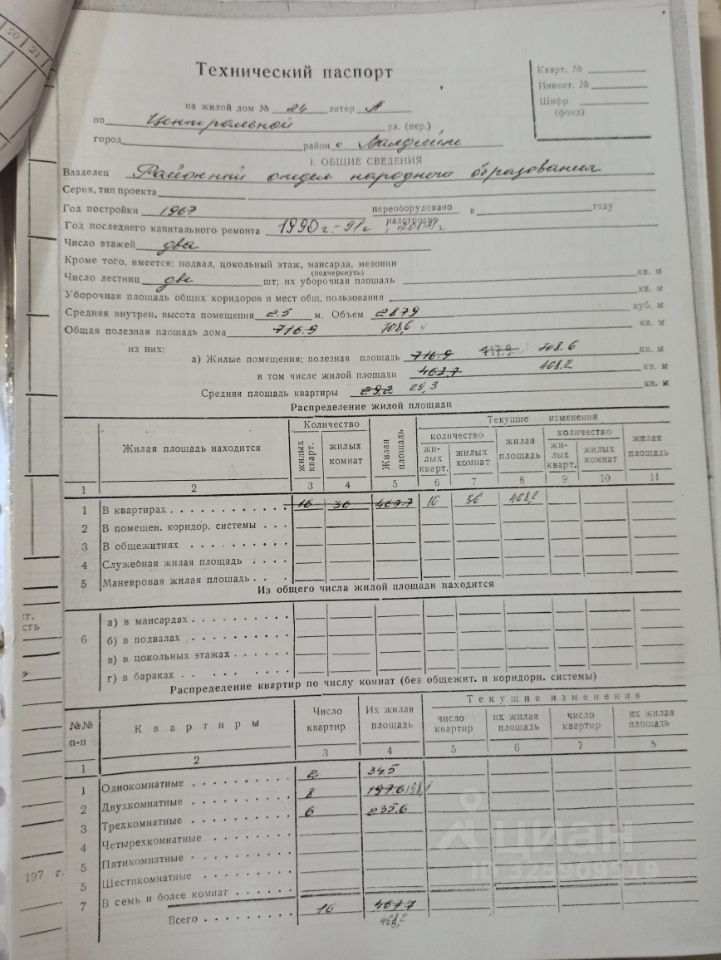 20 21
Технический паспорт
Кварт. №
Инвент. №
Шифр
(фонд)
на жилой дом № 24 литер А
по Центральной ул. (пер.)
город район с.
I. ОБЩИЕ СВЕДЕНИЯ
Владелец Районный отдел народного образования
Серия, тип проекта
Год постройки 1967 переоборудовано надстроено в году
Год последнего капитального ремонта 1990 г.-91г
Число этажей два
Кроме того, имеется: подвал, цокольный этаж, мансарда, мезонин
(подчеркнуть)
Число лестниц две шт; их уборочная площадь кв. м
Уборочная площадь общих коридоров и мест общ. пользования кв. м
Средняя внутрен. высота помещения 2.5 м. Объем 2879 куб. м
Общая полезная площадь дома 716.9 708,6 кв. м
из них:
а) Жилые помещения; полезная площадь 716.9 717.9 708.6 кв. м
в том числе жилой площади 467.7 468.2 кв. м
Средняя площадь квартиры 29.2 29,3 кв. м
Распределение жилой площади
Жилая площадь находится
Количество
жилых кварт.
жилых комнат
Жилая площадь
Текущие изменения
количество
жилых кварт.
жилых комнат
жилая площадь
количество
жилых кварт.
жилых комнат
жилая площадь
1 2 3 4 5 6 7 8 9 10 11
1 В квартирах 16 36 467.7 16 36 468,2
2 В помещен. коридор. системы
3 В общежитиях
4 Служебная жилая площадь
5 Маневровая жилая площадь
Из общего числа жилой площади находится
6
а) в мансардах
б) в подвалах
в) в цокольных этажах
г) в бараках
Распределение квартир по числу комнат (без общежит. и коридорн. системы)
№№ п-п
Квартиры
Число квартир
Их жилая площадь
Текущие изменения
число квартир
их жилая площадь
число квартир
их жилая площадь
1 2 3 4 5 6 7 8
1 Однокомнатные 2 34.5
2 Двухкомнатные 8 197.6 198,1
3 Трехкомнатные 6 235.6
4 Четырехкомнатные
5 Пятикомнатные
5 Шестикомнатные
7 В семь и более комнат
Всего 16 467.7
468,2
197 г.
циан